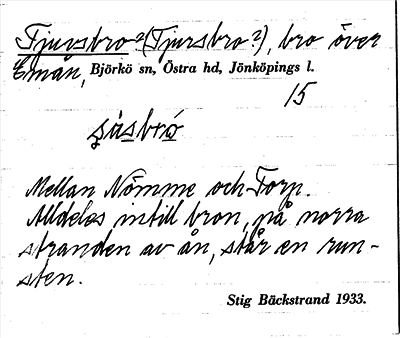 Tjursbro? (Tjursbro?), bro över
Emån, Björkö sn, Östra hd, Jönköpings l.
15
Mellan Nömme och Torp.
Alldeles intill bron, på norra
stranden av ån, står en run-
sten.
Stig Bäckstrand 1933.